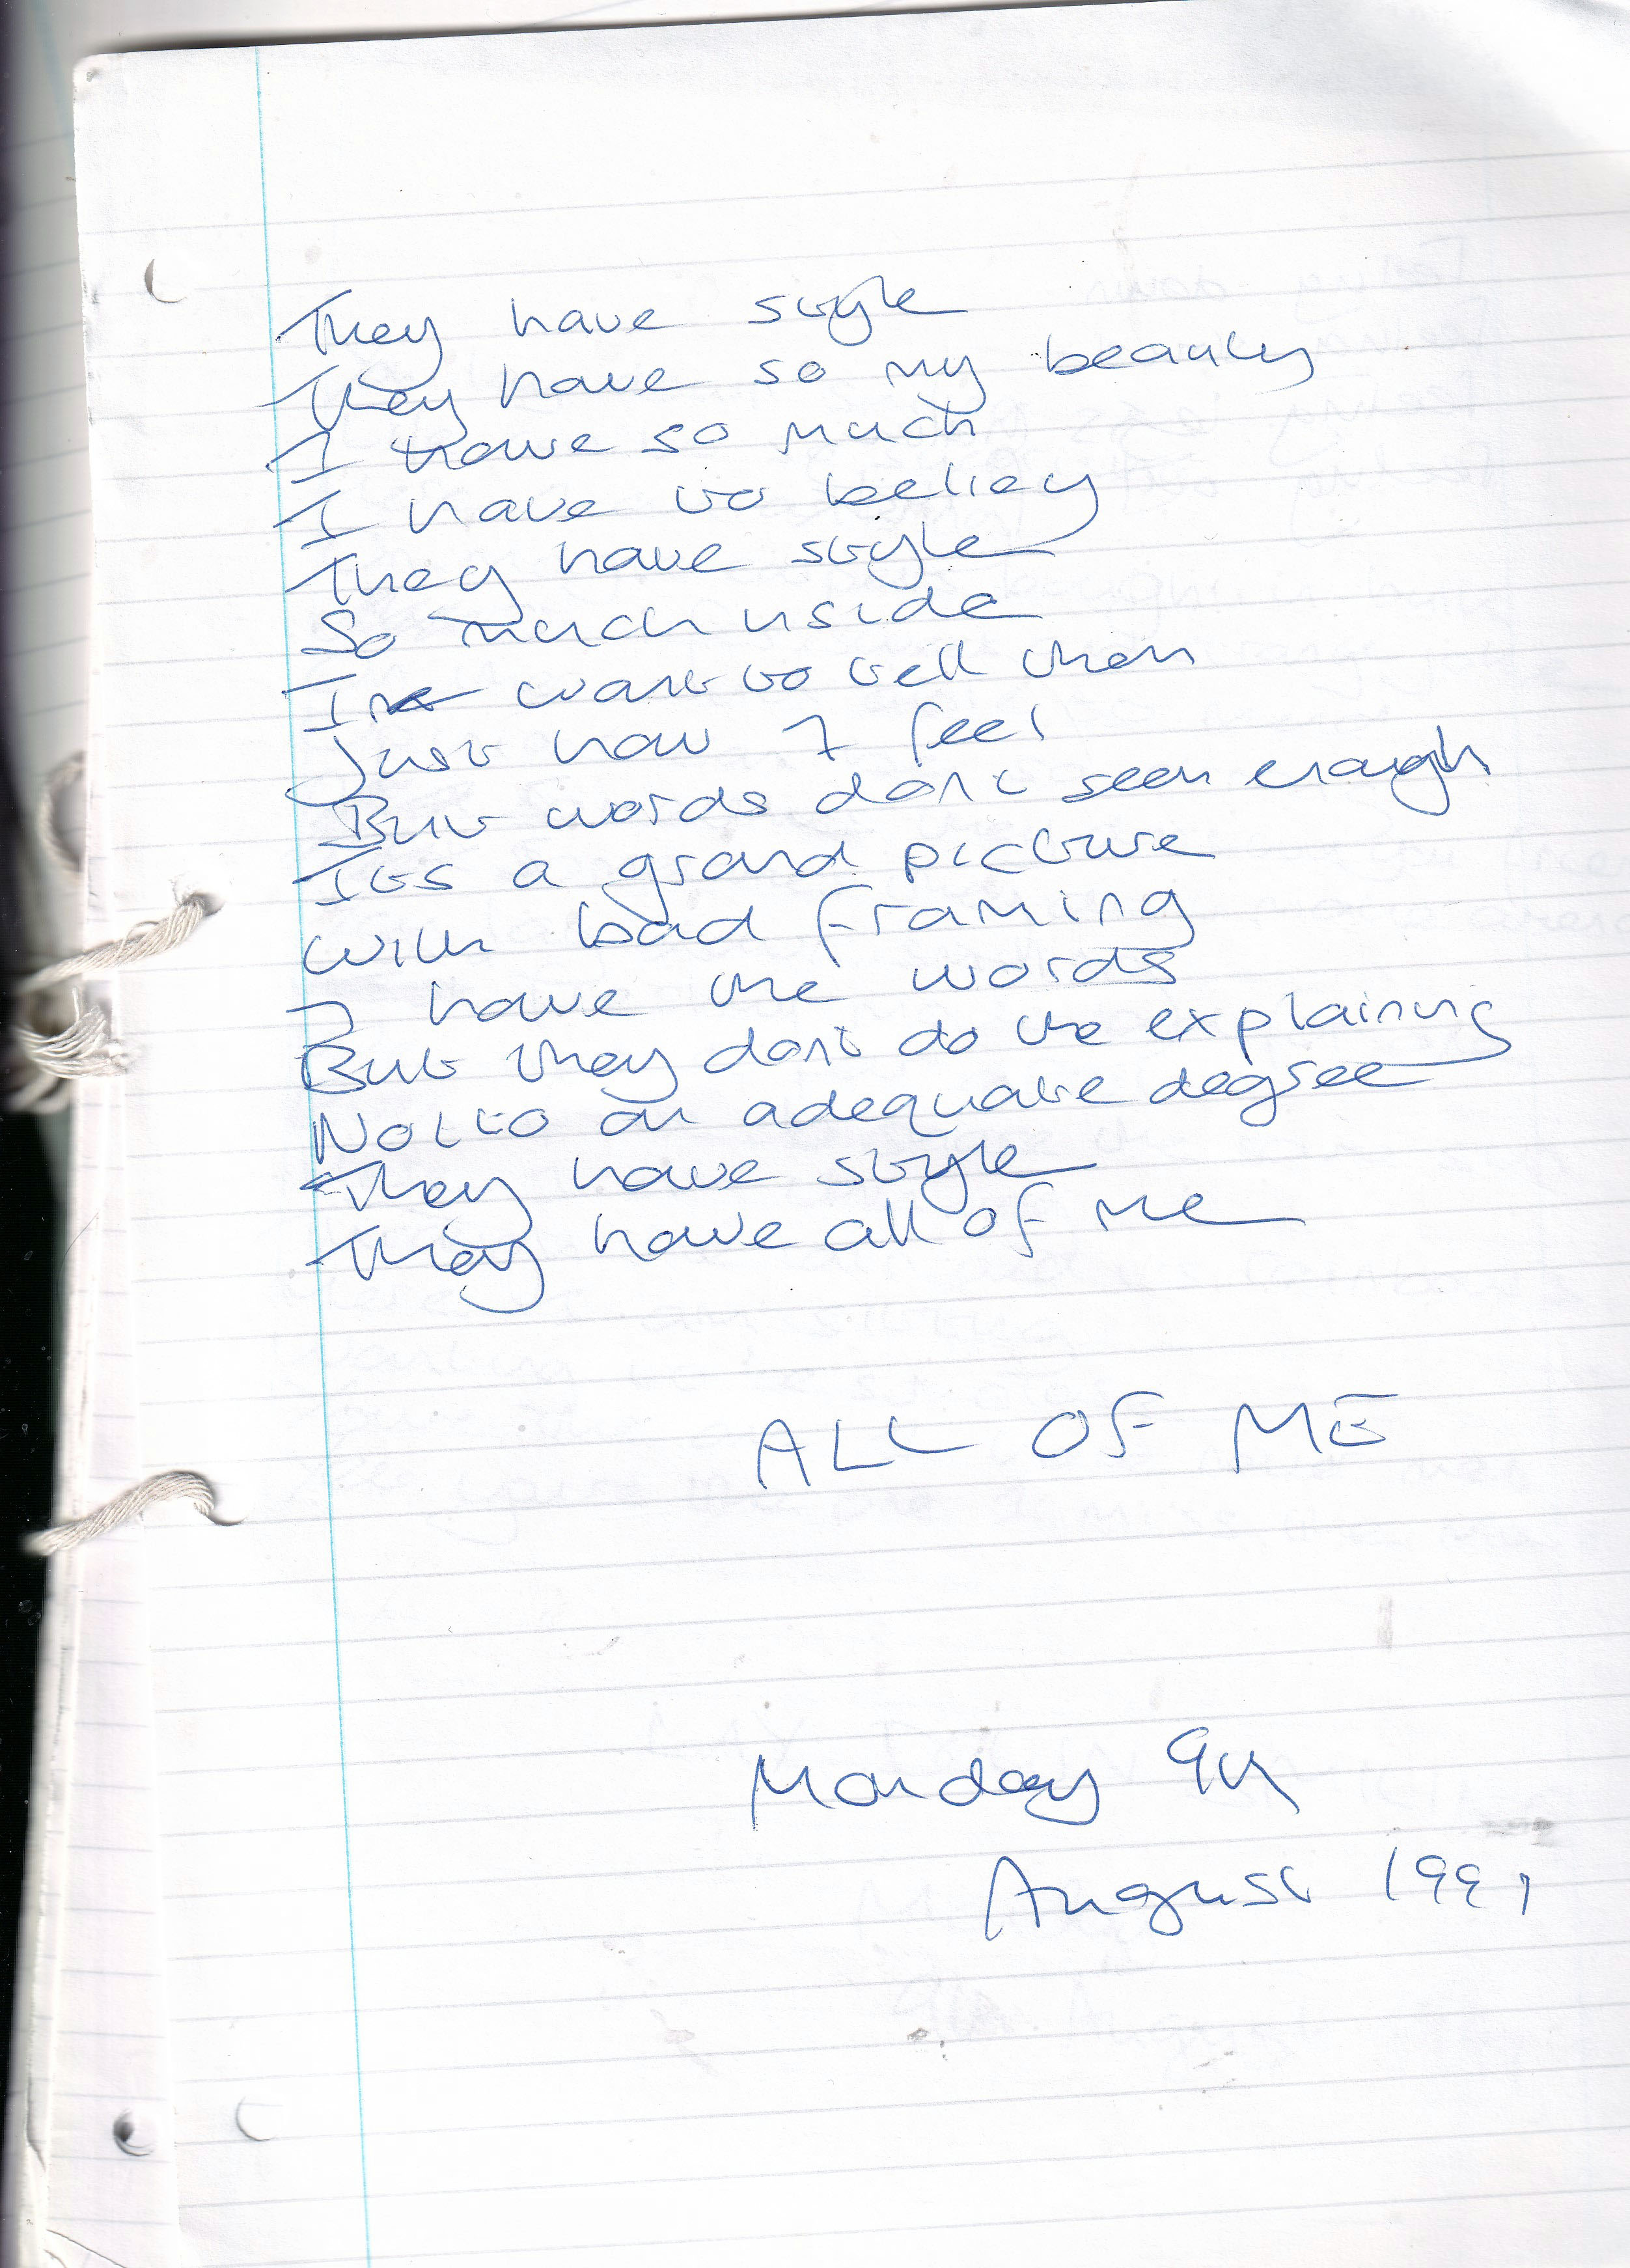 They have style
They have so my beauty
I have so much
I have to
They have style
So much inside
I want to tell them
Just how I feel
But words don't seem enough
Its a grand picture
With bad framing
I have the words
But they don't do the explaining
Not to an adequate degree
They have style
They have all of me
ALL OF ME
Monday 9th
August 1991